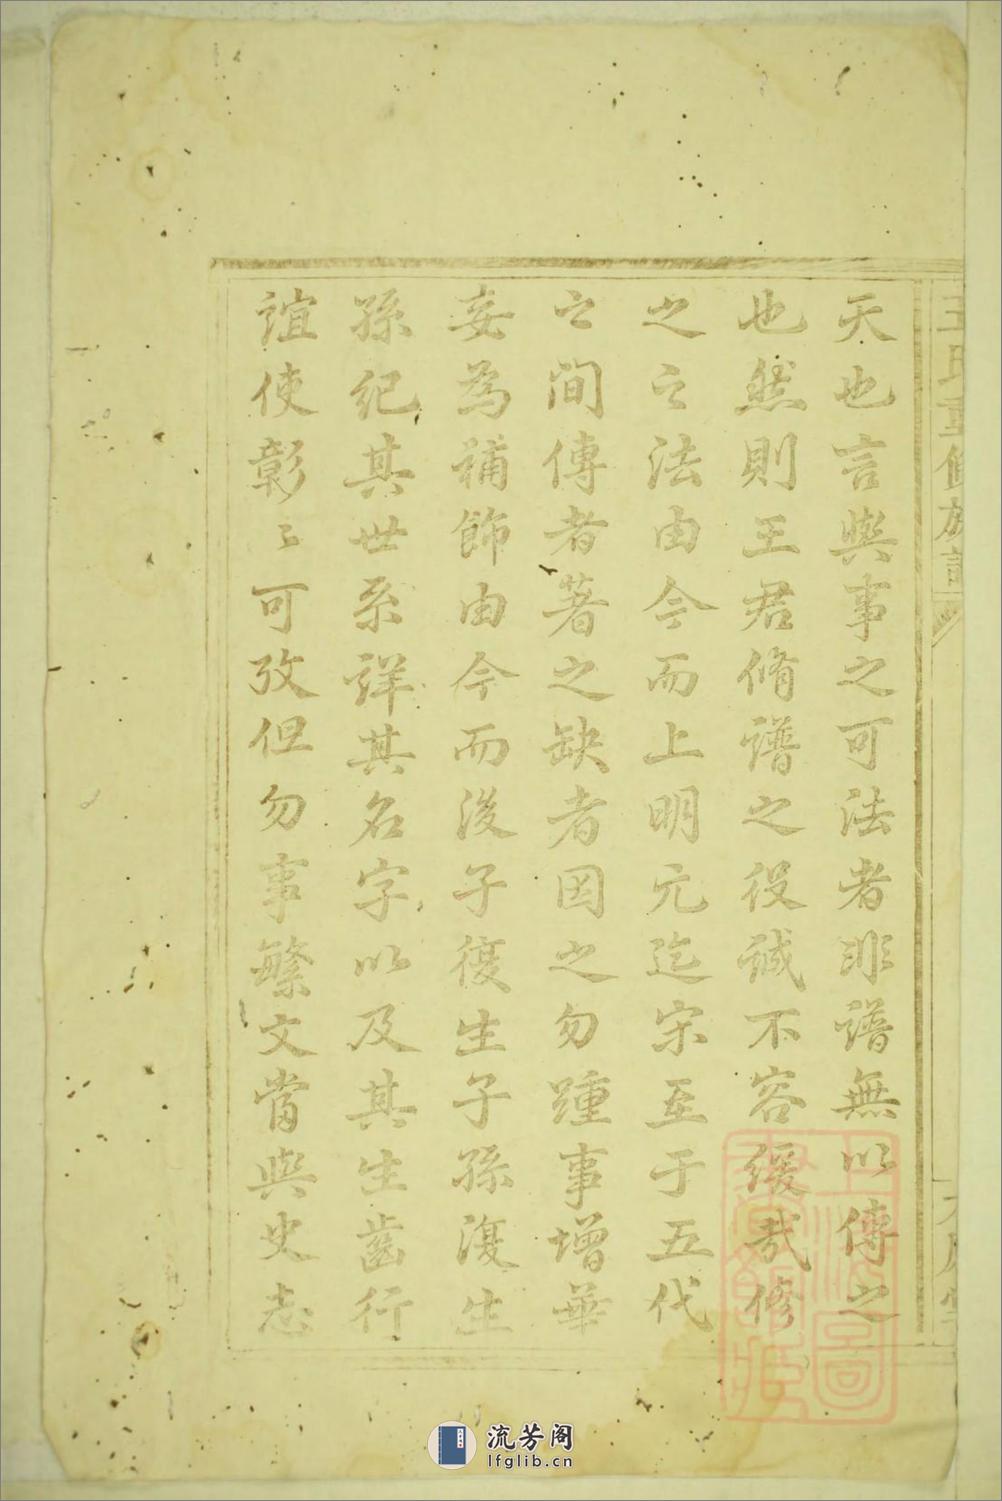 天也言與事之可法者非譜無以傳之
也然則王君脩譜之役誠不容緩哉修
之之法由今而上明元迄宋至于五代
之間傳者著之缺者因之勿踵事增華
妄為補飾由今而後子復生子孫復生
孫紀其世系詳其名字以及其生齒行
誼使彰彰可攷但勿事繁文當與史志
王氏重修族譜
上海圖書館藏
流芳阁
lfglib.cn